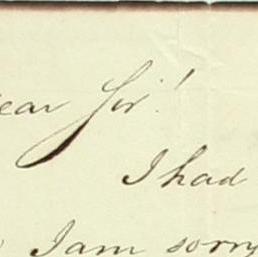 ear Sir!
I had
I am sorry